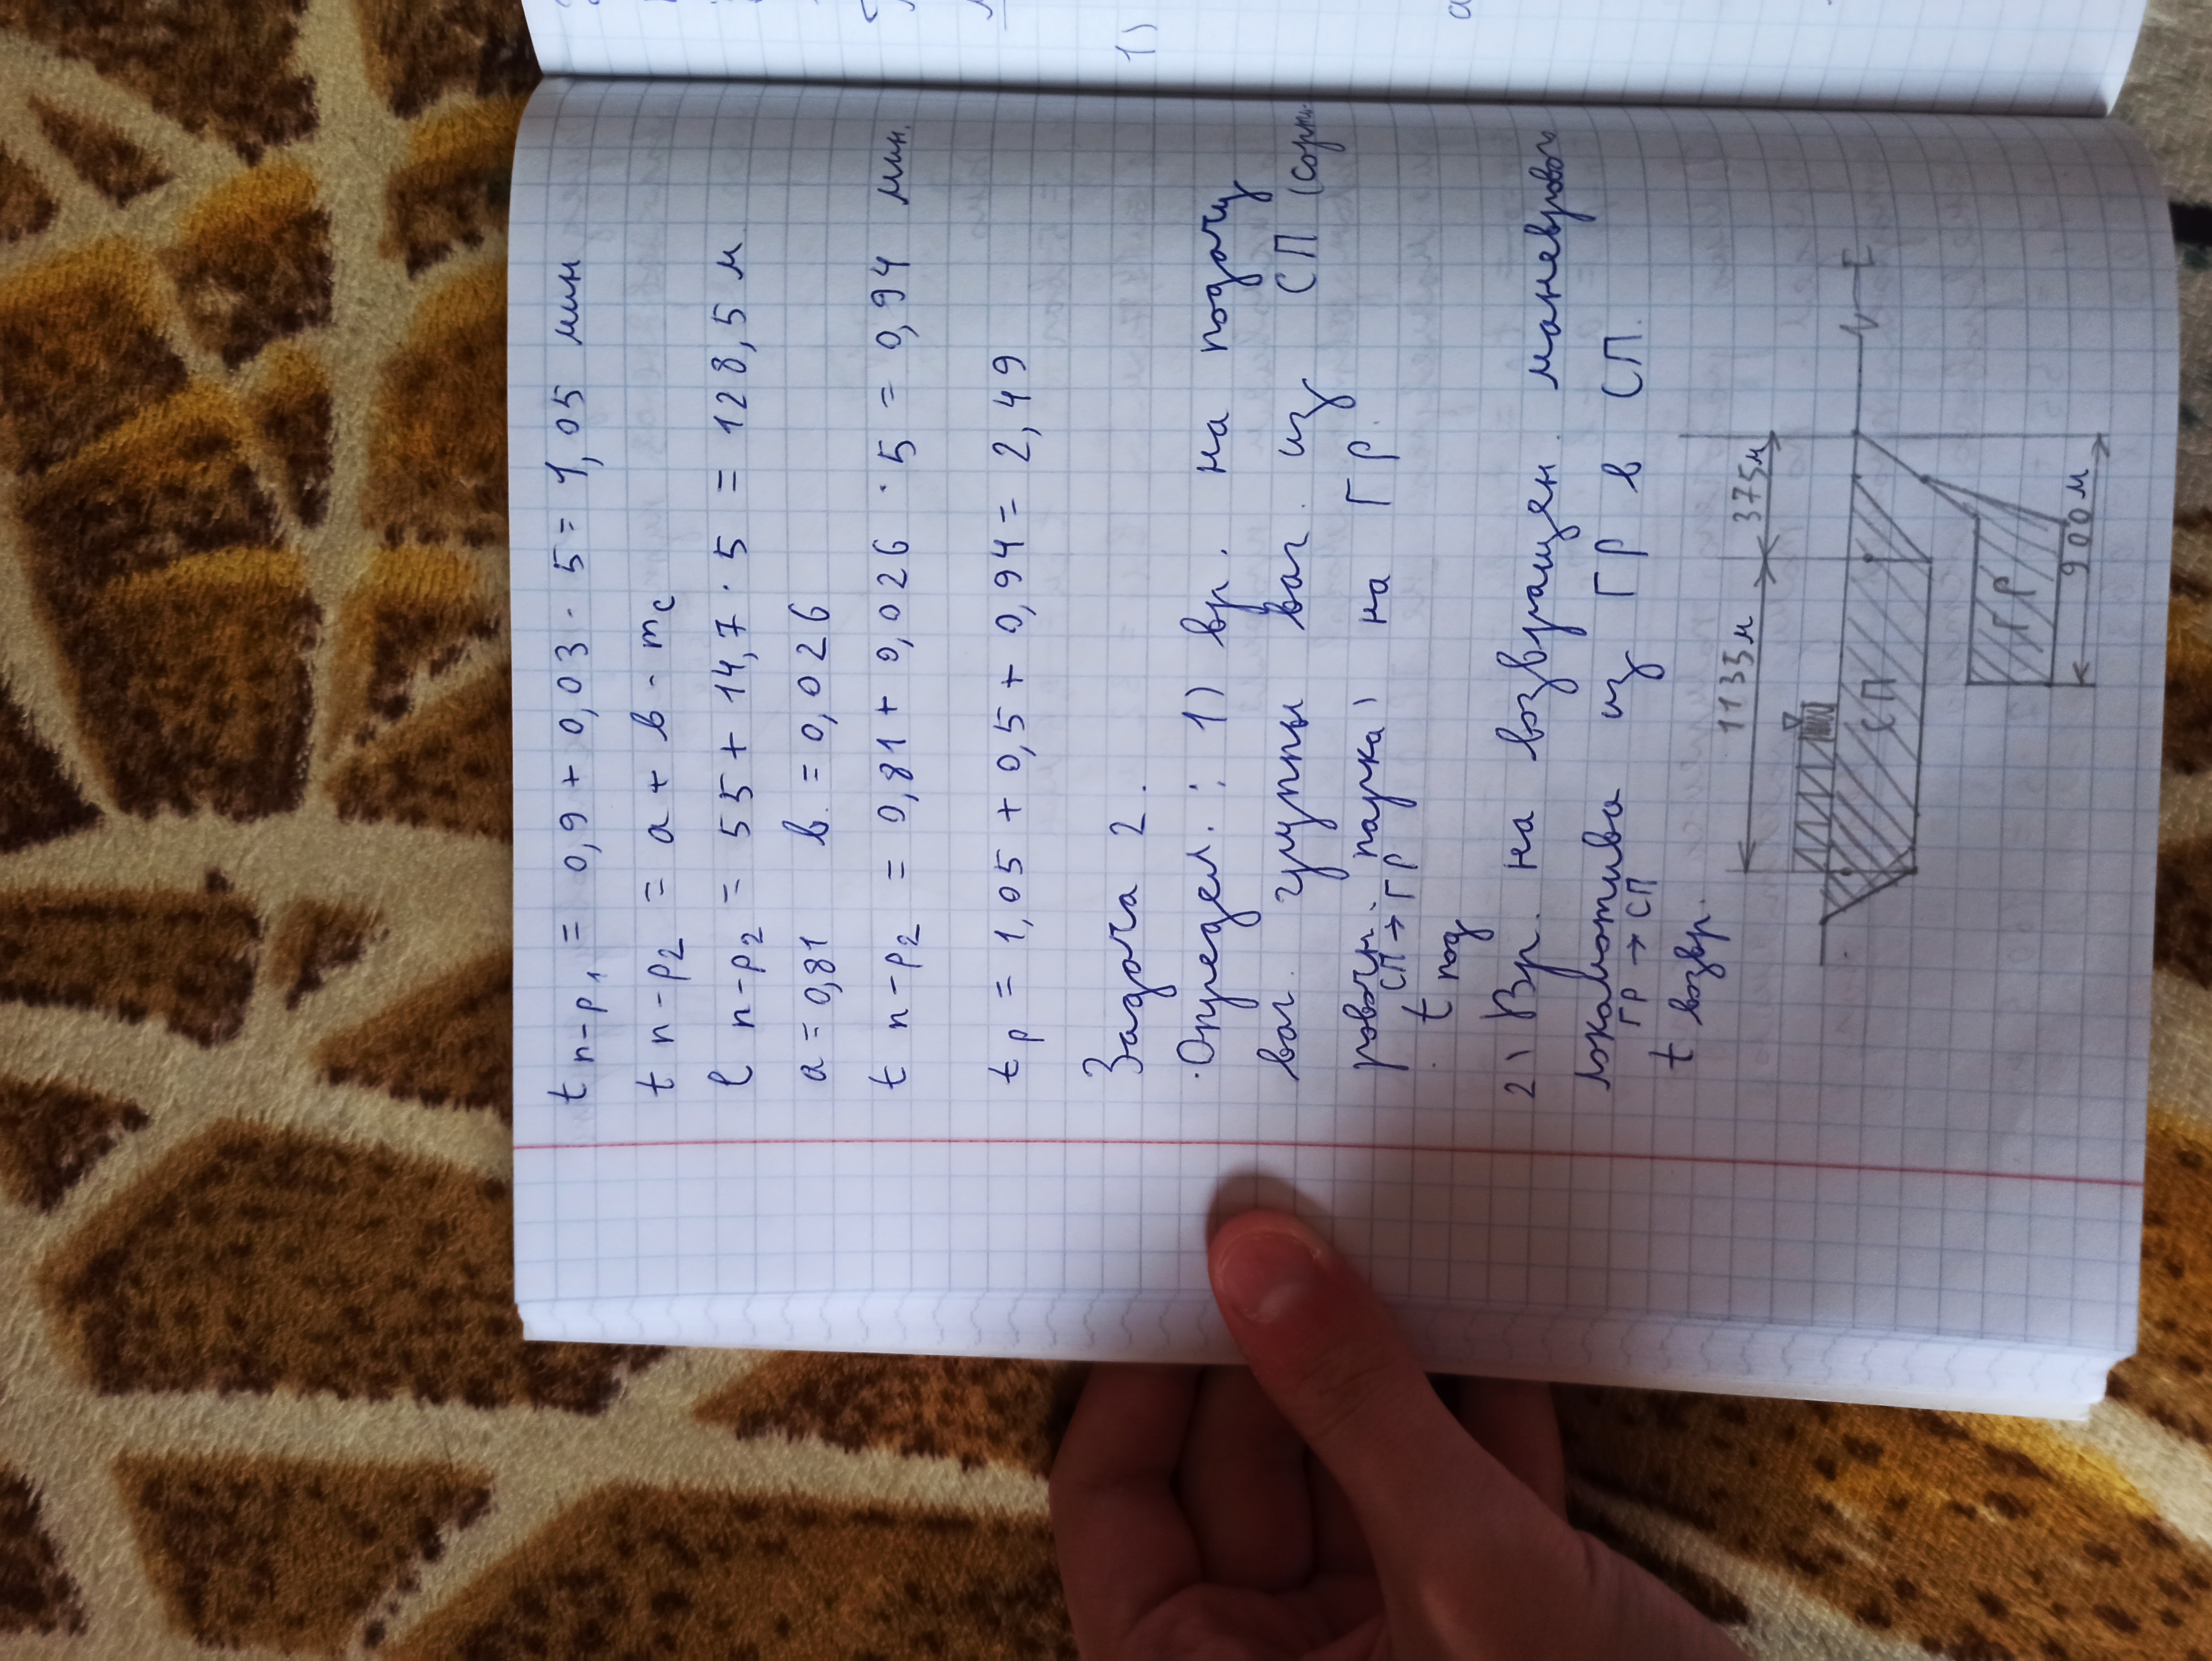 t п-р₁ = 0,9 + 0,03 · 5 = 1,05 мин
t п-р₂ = а + в · mс
l п-р₂ = 55 + 14,7 · 5 = 128,5 м
а = 0,81 в = 0,026
t п-р₂ = 0,81 + 0,026 · 5 = 0,94 мин.
t р = 1,05 + 0,5 + 0,94 = 2,49
Задача 2.
Определ.: 1) вр. на подачу
ваг. группы ваг. из СП (сорти-
ровочн. парка) на ГР.
t под СП→ГР
2) Вр. на возвращен. маневрового
локомотива из ГР в СП.
t возвр. ГР→СП
1135м 375м
СП
ГР
900м
1)